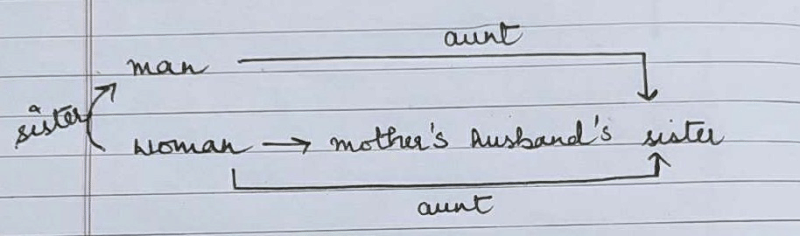 aunt
man
sister
woman → mother's husband's sister
aunt